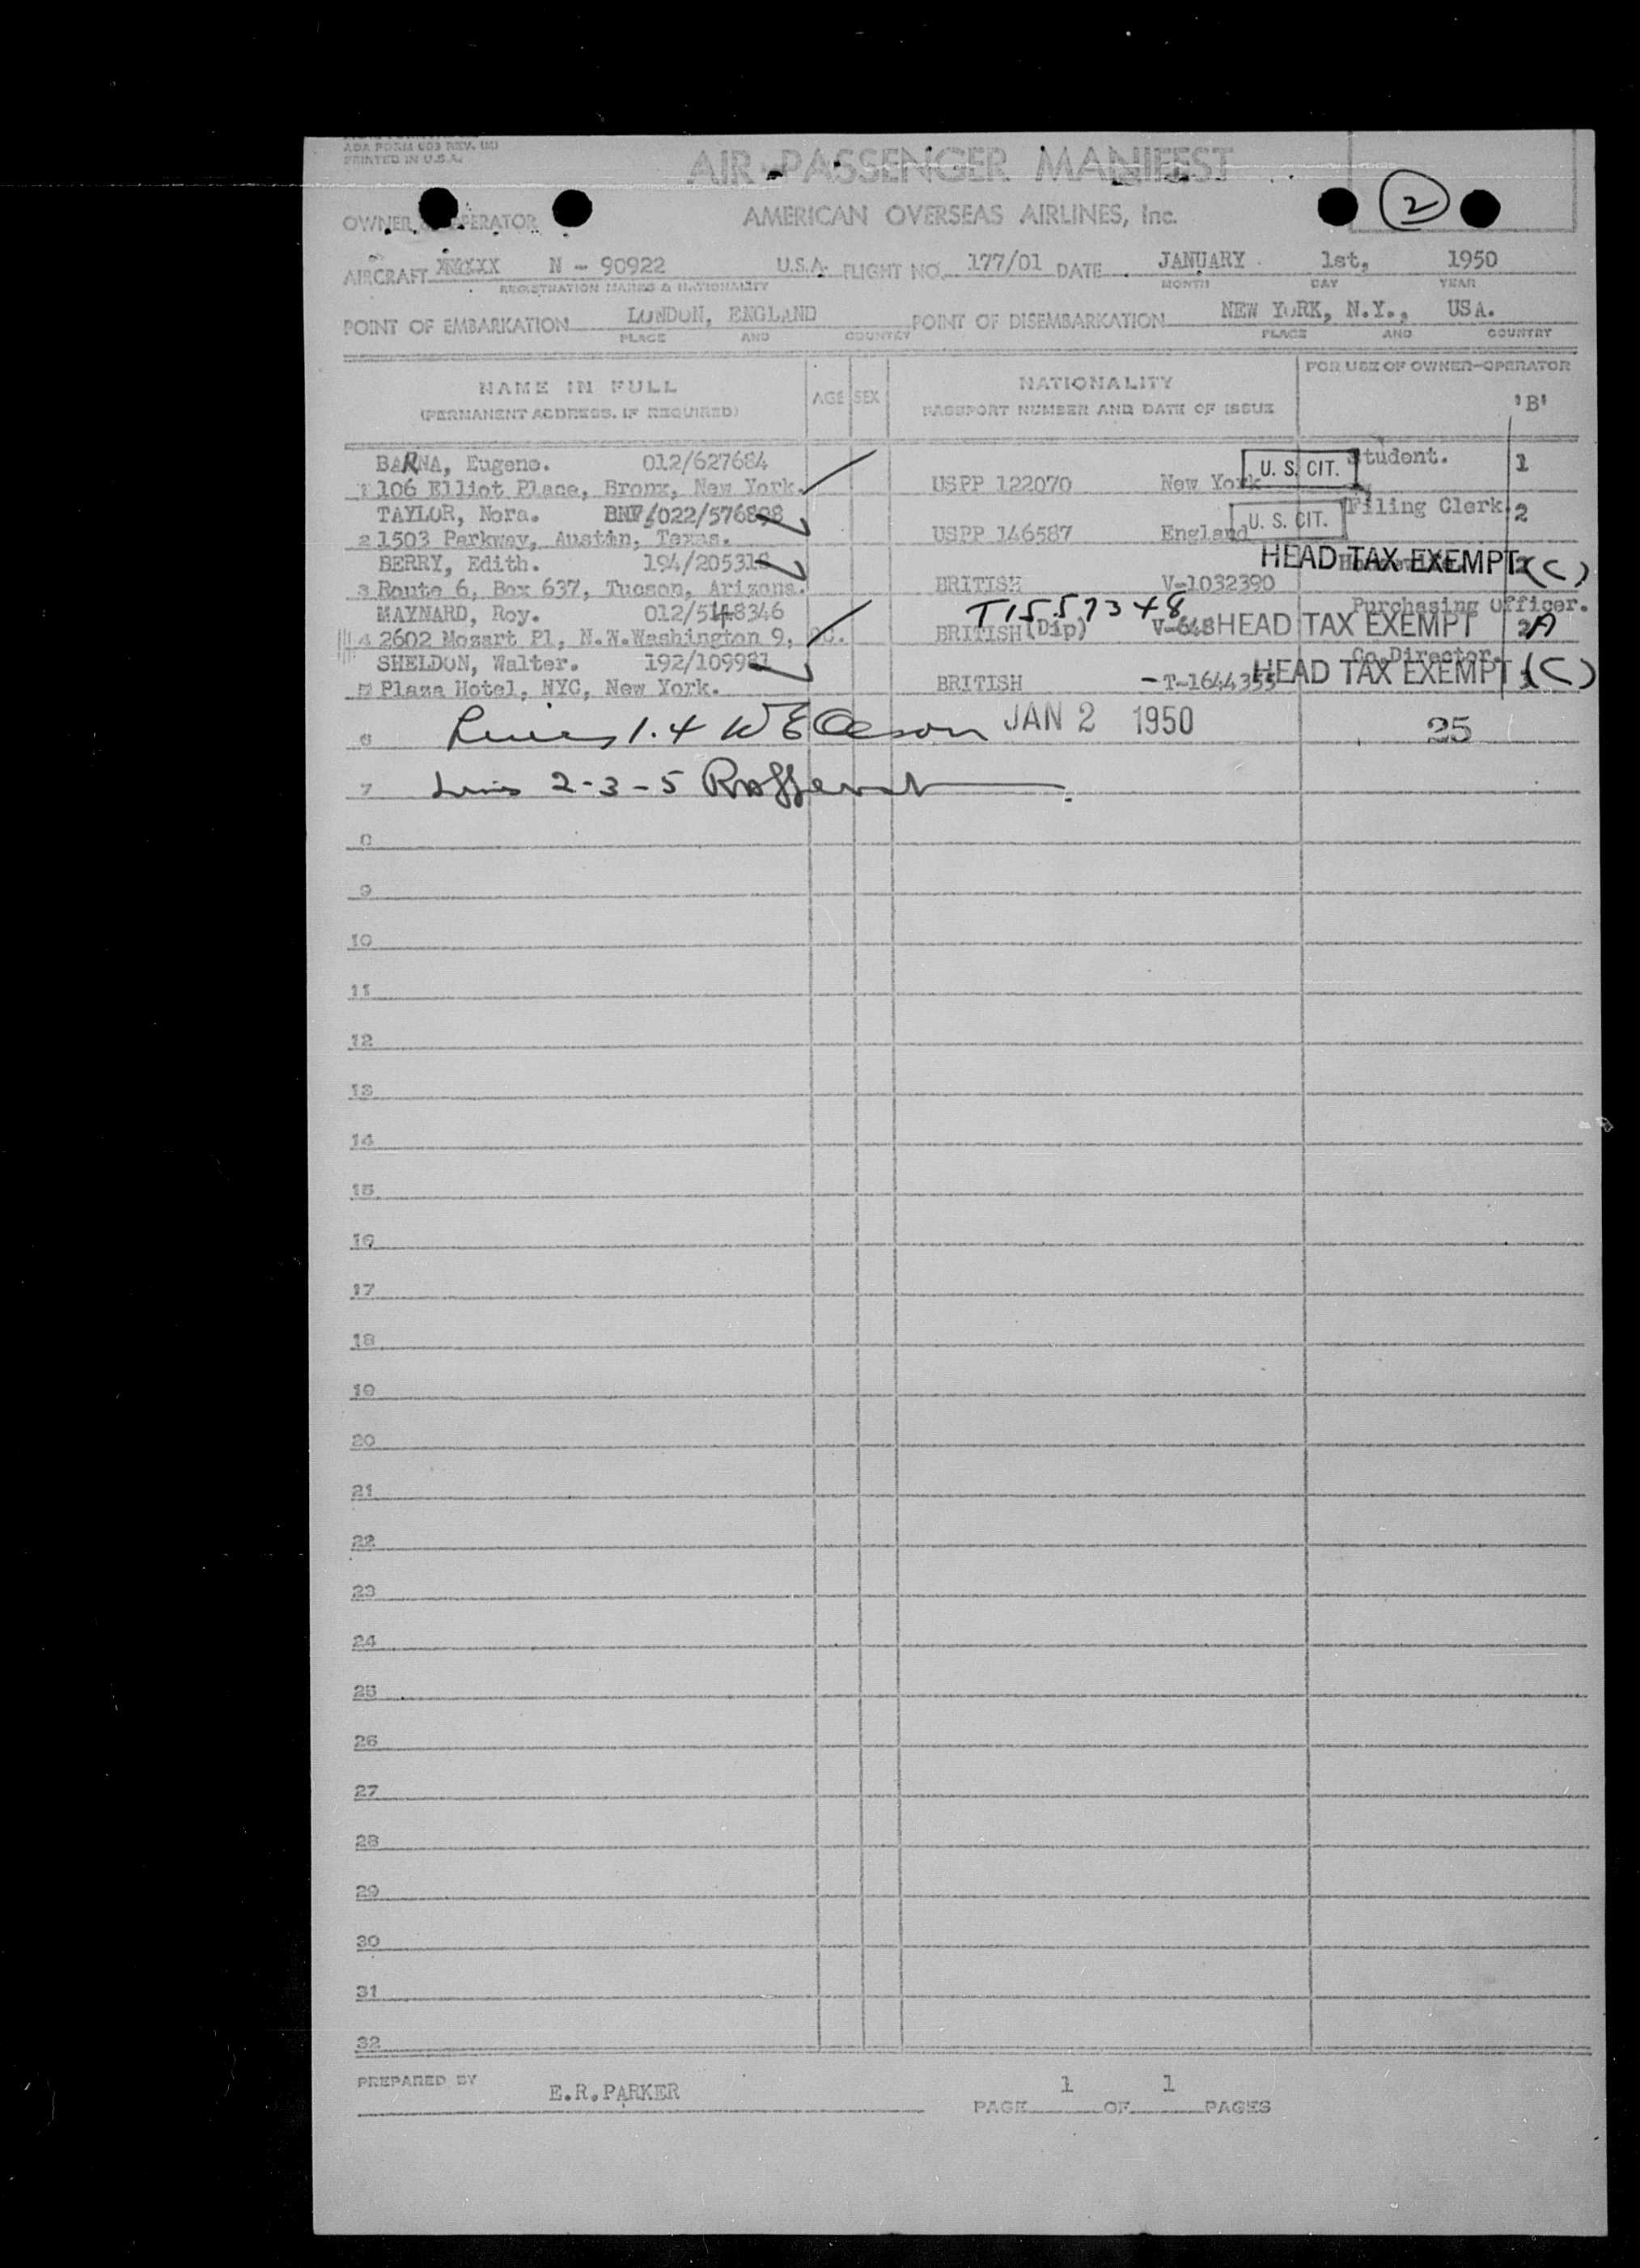 PRINTED IN U.S.A.
AIR PASSENGER MANIFEST
2
OWNER OPERATOR
AMERICAN OVERSEAS AIRLINES, Inc.
AIRCRAFT XXXXX N - 90922 U.S.A. FLIGHT NO. 177/01 DATE JANUARY 1st, 1950
REGISTRATION MARKS & NATIONALITY MONTH DAY YEAR
POINT OF EMBARKATION LONDON, ENGLAND POINT OF DISEMBARKATION NEW YORK, N.Y., USA.
PLACE AND COUNTRY PLACE AND COUNTRY
NAME IN FULL
(PERMANENT ADDRESS, IF REQUIRED)
AGE SEX
NATIONALITY
PASSPORT NUMBER AND DATE OF ISSUE
FOR USE OF OWNER-OPERATOR
'B'
BARNA, Eugene. 012/627684 Student.
1 106 Elliot Place, Bronx, New York. USPP 122070 New York U. S. CIT. 1
TAYLOR, Nora. BNF/022/576898 Filing Clerk
2 1503 Parkway, Austin, Texas. USPP 146587 England U. S. CIT. 2
BERRY, Edith. 194/205318 HEAD TAX EXEMPT (C)
3 Route 6, Box 637, Tucson, Arizona. BRITISH V-1032390
MAYNARD, Roy. 012/548346 T1557348 Purchasing Officer.
4 2602 Mozart Pl, N.W.Washington 9, DC. BRITISH (Dip) V-648 HEAD TAX EXEMPT 2A
SHELDON, Walter. 192/109981 Co Director.
5 Plaza Hotel, NYC, New York. BRITISH - T-1644355 HEAD TAX EXEMPT (C)
6 Lines 1.4 JAN 2 1950 25
7 Lines 2-3-5
8
9
10
11
12
13
14
15
16
17
18
19
20
21
22
23
24
25
26
27
28
29
30
31
32
PREPARED BY E.R.PARKER
PAGE 1 OF 1 PAGES